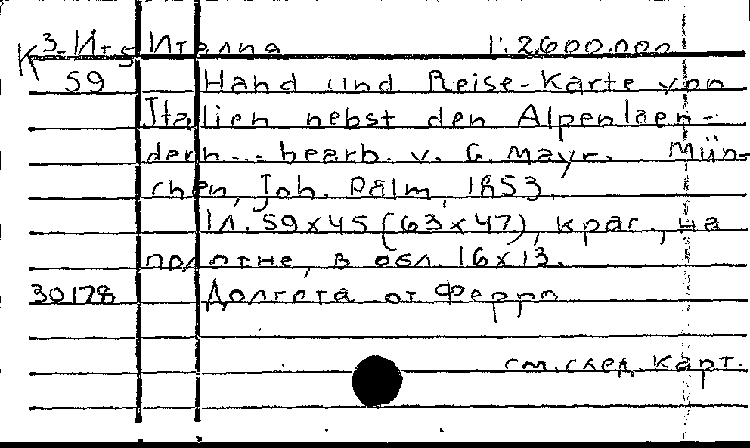 К 3-Ит5 Италия 1:2.600.000
59 Hand und Reise-Karte von
Italien nebst den Alpenlaen-
dern... bearb. v. G. Mayr. Mün-
chen, Joh. Palm, 1853.
1л. 59x45 (63x47), крас., на
полотне, в обл. 16x13.
30178 Долгота от Ферро
см. след. карт.